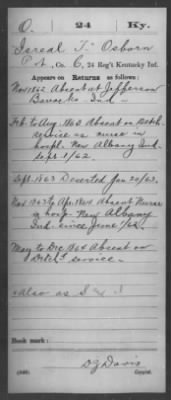 O. 24 Ky.
Isreal T. Osborn
Pt., Co. C, 24 Reg't Kentucky Inf.
Appears on Returns as follows:
Nov 1862 Absent at Jefferson
Barracks Ind
Feb to Aug. 1863 Absent on Detch.
service as nurse in
hospl. New Albany Ind.
sept. 1/62.
Sept. 1863 Deserted Jan 20/63.
Nov. 1863 to Apr. 1864 Absent Nurse
in hosp. New Albany
Ind. since June 1/62.
May to Dec 1864 Absent on
Detch'd service.
Also as
Book mark:
D J Davis
Copyist.